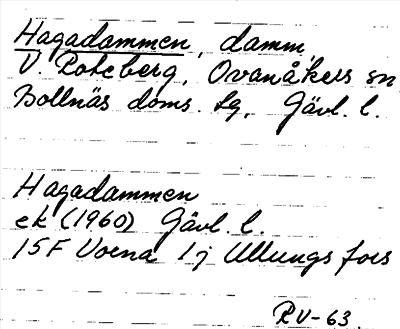 Hagadammen, damm,
V. Roteberg, Ovanåkers sn
Bollnäs doms. lg, Gävl. l.
Hagadammen
ek (1960) Gävl. l.
15F Voxna 1j Ullungsfors
RV-63